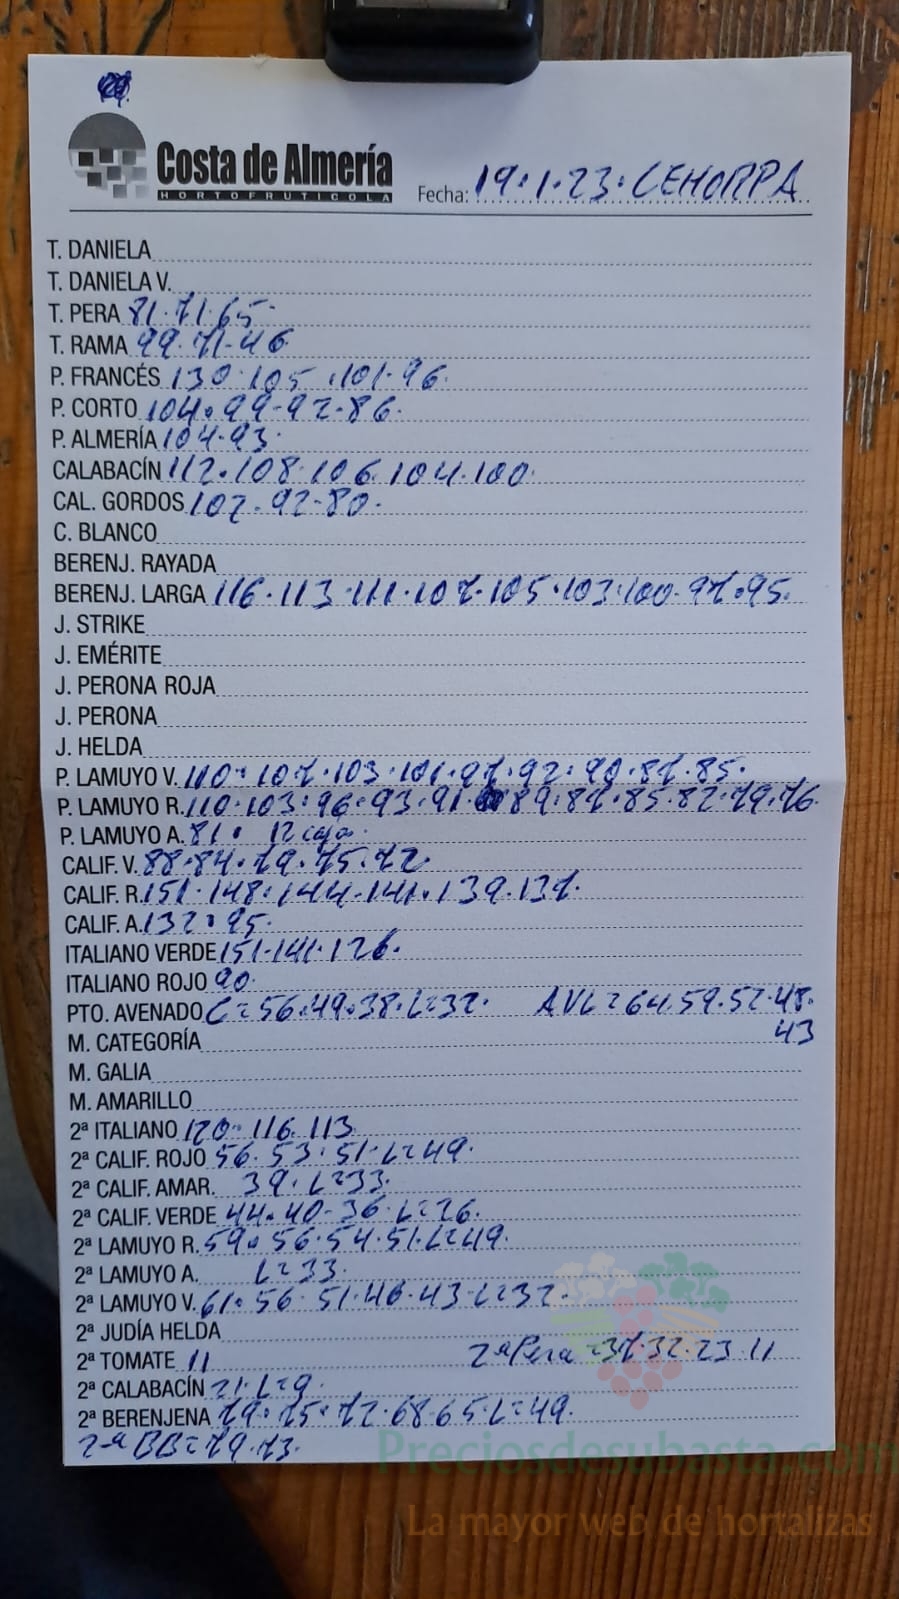 Costa de Almería
HORTOFRUTICOLA
Fecha: 19.1.23. CEHORPA
T. DANIELA
T. DANIELA V.
T. PERA 81.71.65
T. RAMA 99.71.46
P. FRANCÉS 130.105.101.96.
P. CORTO 104.99-92-86.
P. ALMERÍA 104.93.
CALABACÍN 112.108.106.104.100.
CAL. GORDOS 102.92-80.
C. BLANCO
BERENJ. RAYADA
BERENJ. LARGA 116.113.111.107.105.103.100.97.95.
J. STRIKE
J. EMÉRITE
J. PERONA ROJA
J. PERONA
J. HELDA
P. LAMUYO V. 110.107.103.101.97.92.90.87.85.
P. LAMUYO R. 110.103.96.93.91.89.87.85.82.79.76.
P. LAMUYO A. 81. 12 cajas.
CALIF. V. 88.84.79.75.72.
CALIF. R. 151.148.144.141.139.137.
CALIF. A. 132.95.
ITALIANO VERDE 151.141.126.
ITALIANO ROJO 90.
PTO. AVENADO C=56.49.38.L=32. AVL=64.59.52.48.
43
M. CATEGORÍA
M. GALIA
M. AMARILLO
2ª ITALIANO 120.116.113
2ª CALIF. ROJO 56.53.51.L=49.
2ª CALIF. AMAR. 39.L=33.
2ª CALIF. VERDE 44.40-36.L=26.
2ª LAMUYO R. 59.56.54.51.L=49.
2ª LAMUYO A. L=33.
2ª LAMUYO V. 61.56.51.46.43.L=32.
2ª JUDÍA HELDA
2ª TOMATE 11 2ª Pera=37.32.23.11
2ª CALABACÍN 21.L=9.
2ª BERENJENA 79.75.72.68.65.L=49.
2ª BB=79.73.
Preciosdesubasta.com
La mayor web de hortalizas